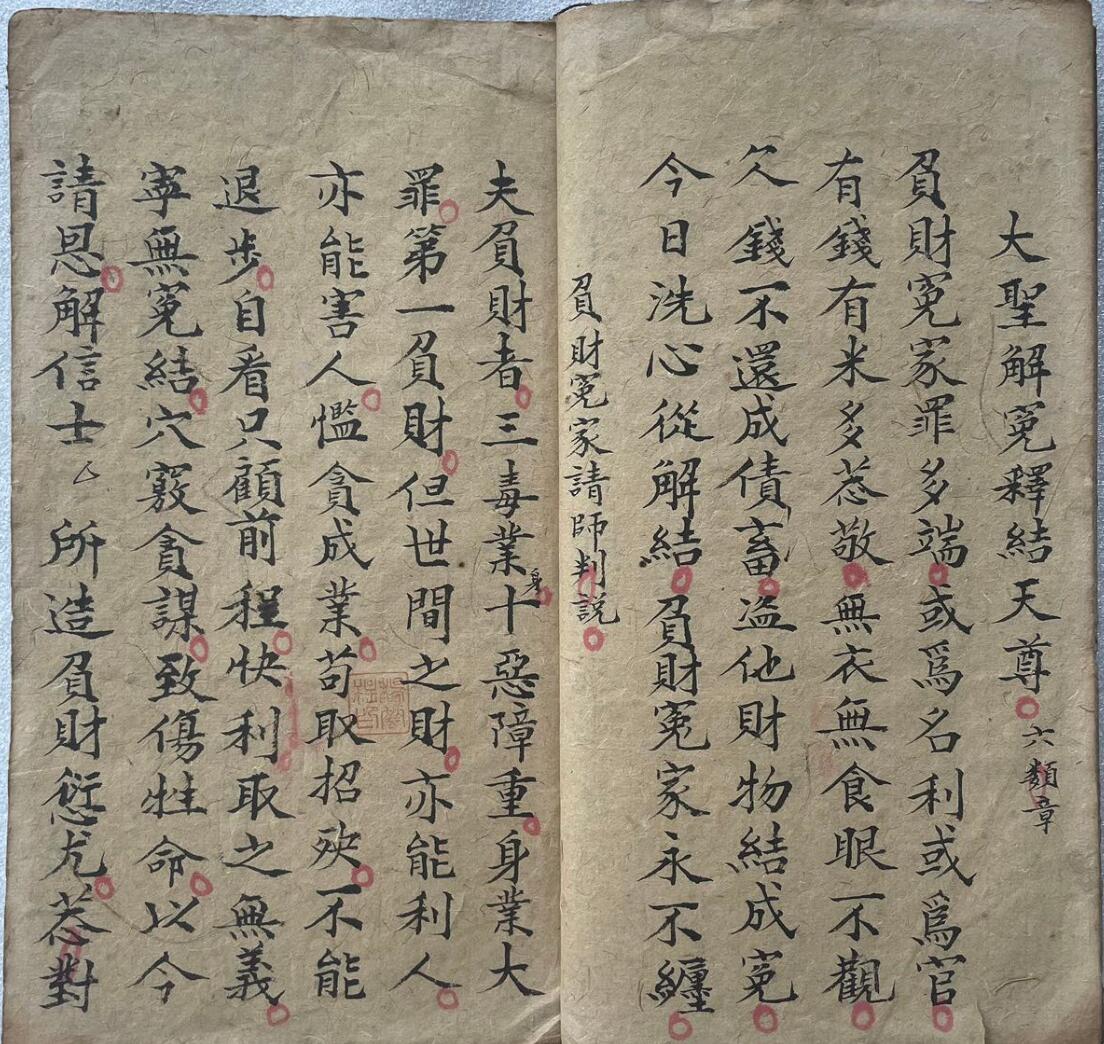 大聖解冤釋結天尊 六類章
負財冤家罪多端或爲名利或爲官
有錢有米多恭敬無衣無食眼不觀
欠錢不還成債畜盗他財物結成冤
今日洗心從解結負財冤家永不纏
負財冤家請師判説
夫負財者三毒業身十惡障重身業大
罪第一負財但世間之財亦能利人
亦能害人懢貪成業苟取招殃不能
退步自看只顧前程快利取之無義
寕無冤結穴竅貪謀致傷性命以今
請恩解信士厶 所造負財愆尤恭對